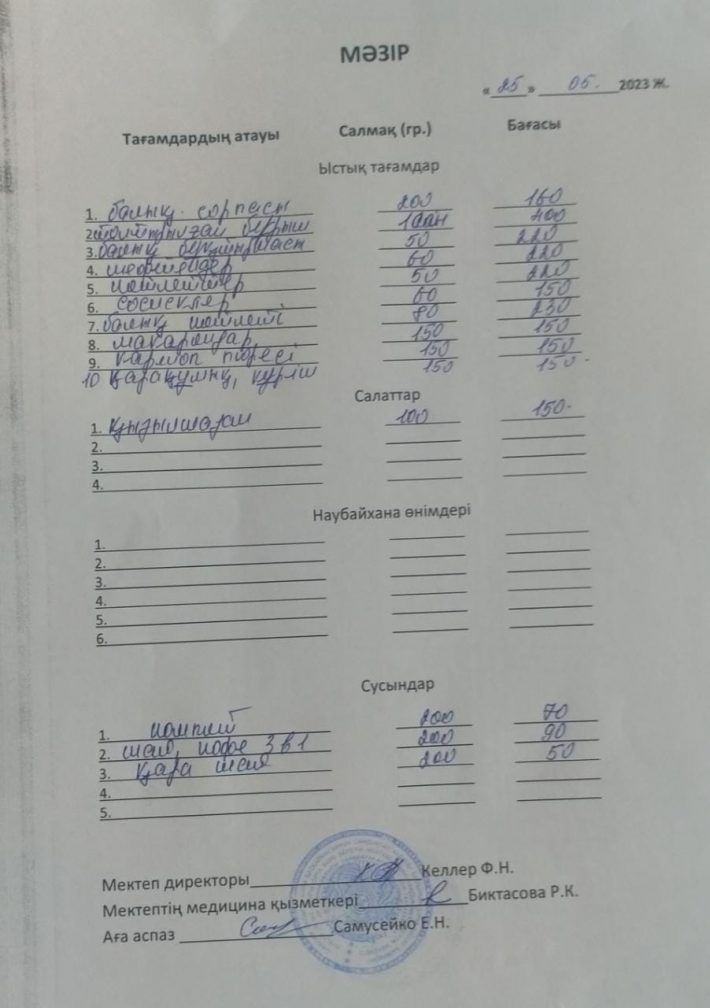 МӘЗІР
«25» 05. 2023 ж.
Тағамдардың атауы Салмақ (гр.) Бағасы
Ыстық тағамдар
1. балық сорпасы 200 160
2. 1 400
3. балық 50 220
4. 60 220
5. 50 220
6. сосискілер 60 150
7. балық 80 230
8. макарондар 150 150
9. картоп пюресі 150 150
10 қарақұмық, күріш 150 150-
Салаттар
1. Қызылшадан 100 150-
2.
3.
4.
Наубайхана өнімдері
1.
2.
3.
4.
5.
6.
Сусындар
1. 200 70
2. шай, кофе 3 в 1 200 90
3. қара шай 200 50
4.
5.
Мектеп директоры Келлер Ф.Н.
Мектептің медицина қызметкері Биктасова Р.К.
Аға аспаз Самусейко Е.Н.